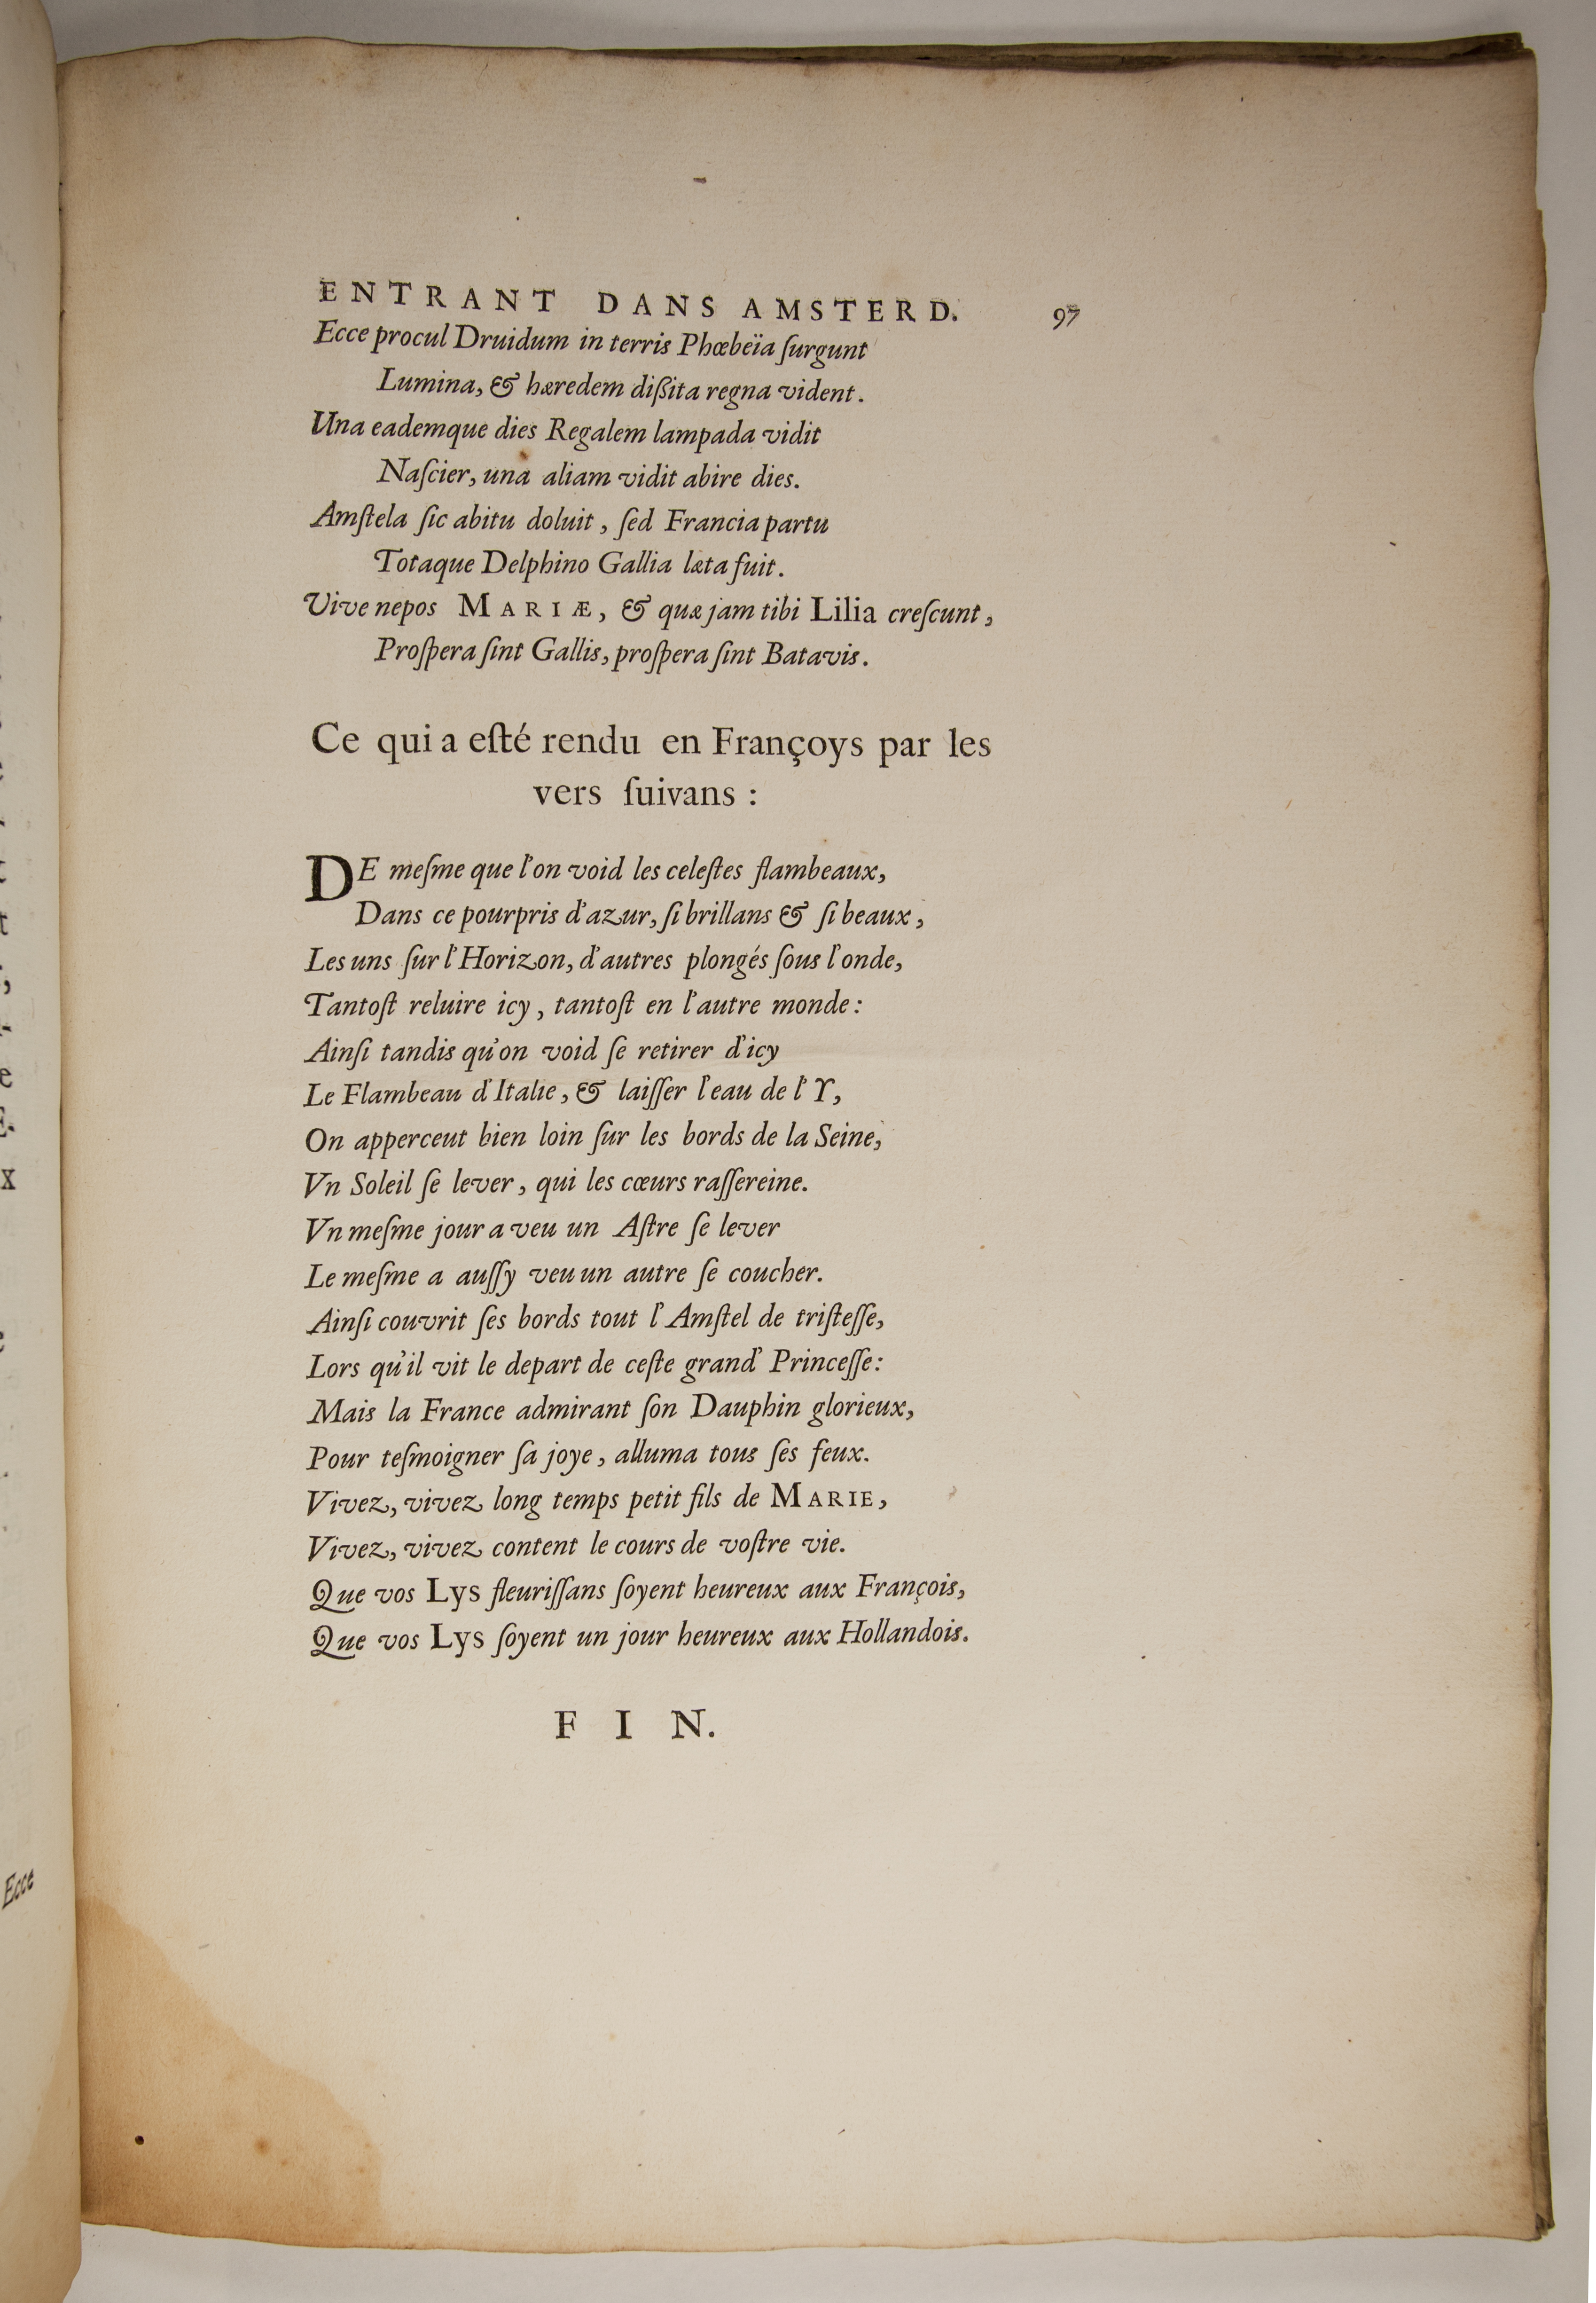 ENTRANT DANS AMSTERD. 97
Ecce procul Druidum in terris Phœbeïa ſurgunt
Lumina, & hæredem dißita regna vident.
Una eademque dies Regalem lampada vidit
Naſcier, una aliam vidit abire dies.
Amſtela ſic abitu doluit, ſed Francia partu
Totaque Delphino Gallia læta fuit.
Vive nepos MARIÆ, & quæ jam tibi Lilia creſcunt,
Proſpera ſint Gallis, proſpera ſint Batavis.
Ce qui a eſté rendu en Françoys par les
vers ſuivans :
DE meſme que l'on void les celeſtes flambeaux,
Dans ce pourpris d'azur, ſi brillans & ſi beaux,
Les uns ſur l'Horizon, d'autres plongés ſous l'onde,
Tantoſt reluire icy, tantoſt en l'autre monde:
Ainſi tandis qu'on void ſe retirer d'icy
Le Flambeau d'Italie, & laiſſer l'eau de l'Y,
On apperceut bien loin ſur les bords de la Seine,
Vn Soleil ſe lever, qui les cœurs raſſereine.
Vn meſme jour a veu un Aſtre ſe lever
Le meſme a auſſy veu un autre ſe coucher.
Ainſi couvrit ſes bords tout l'Amſtel de triſteſſe,
Lors qu'il vit le depart de ceſte grand' Princeſſe:
Mais la France admirant ſon Dauphin glorieux,
Pour teſmoigner ſa joye, alluma tous ſes feux.
Vivez, vivez long temps petit fils de MARIE,
Vivez, vivez content le cours de voſtre vie.
Que vos Lys fleuriſſans ſoyent heureux aux François,
Que vos Lys ſoyent un jour heureux aux Hollandois.
FIN.
Ecce